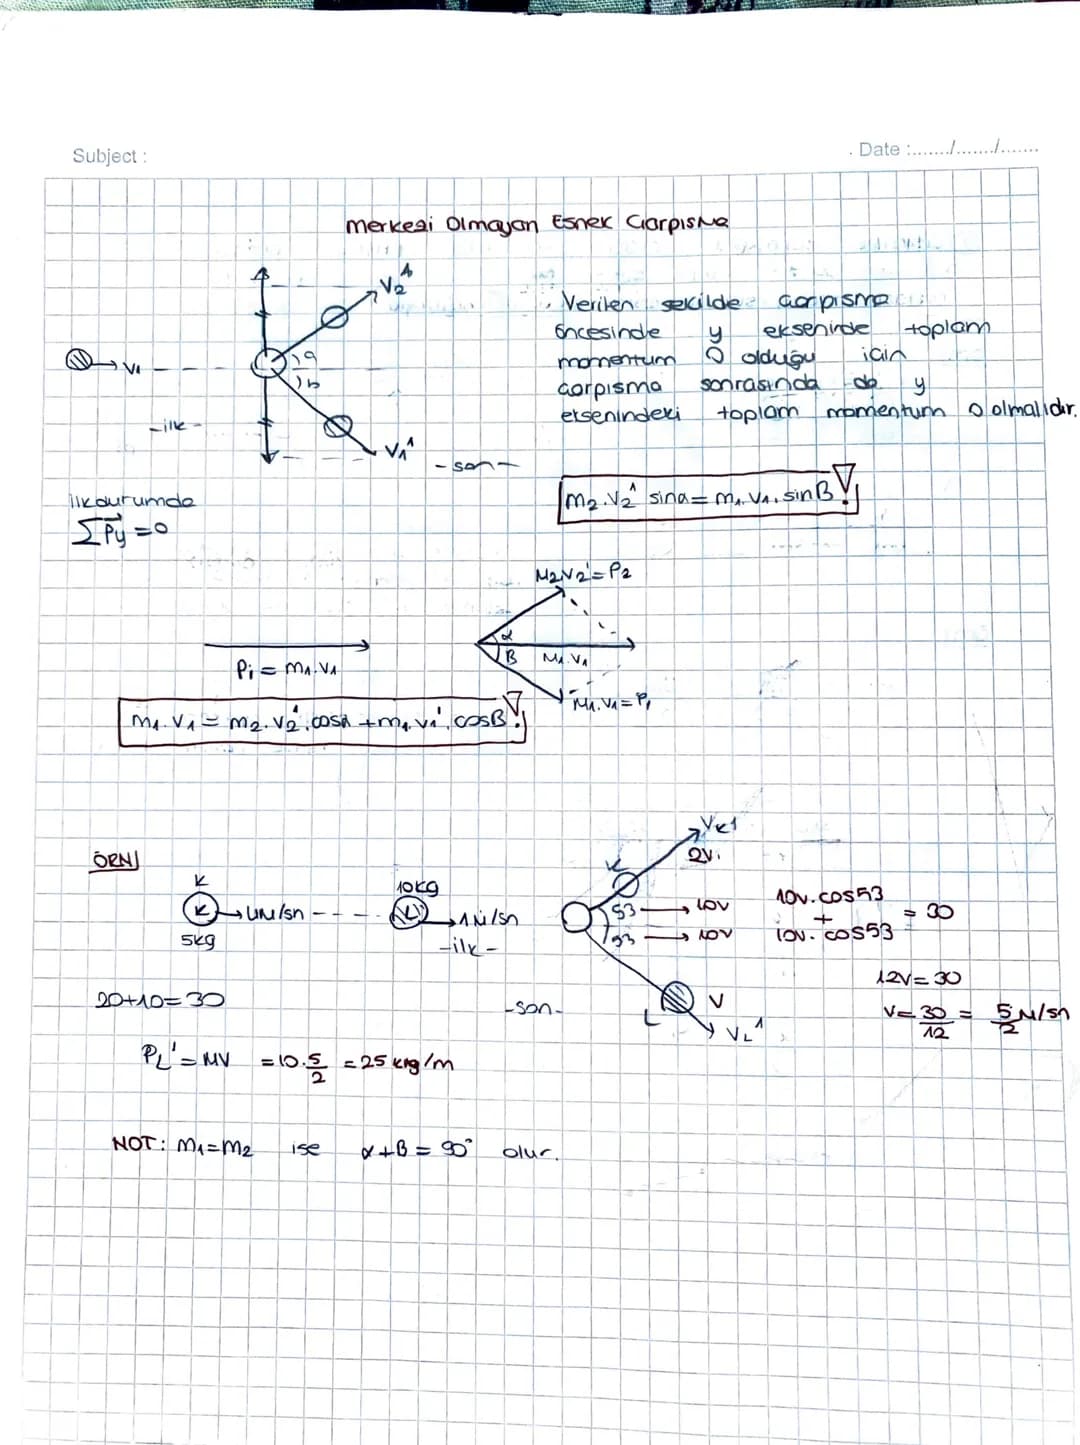 Subject :
Date :......./......./.......
merkezi Olmayan Esnek Çarpışma
V₂'
V₁
a
b
-ilk-
V₁'
-son-
Verilen şekilde çarpışma
öncesinde y ekseninde toplam
momentum 0 olduğu için
çarpışma sonrasında da y
eksenindeki toplam momentum 0 olmalıdır.
ilk durumda
ΣPy=0
m₂.V₂' sina = m₁.V₁.sinB !
M₂V₂'=P₂
α
B
M₁.V₁
Pi = m₁.V₁
M₁.V₁=P₁
m₁.V₁ = m₂.V₂'.cosα + m₁.V₁'.cosB !
ÖRN
K
K
5kg
4M/sn
10kg
L
1M/sn
-ilk-
K
VK1
2V.
53 → 10V
53 → 10V
-son-
L
V
VL'
10V.cos53
+
10V.cos53
= 30
12V=30
V=30/12 = 5/2 M/sn
20+10=30
PL'=MV =10.5/2 =25 kg/m
NOT: M₁=M₂ ise α+B=90° olur.